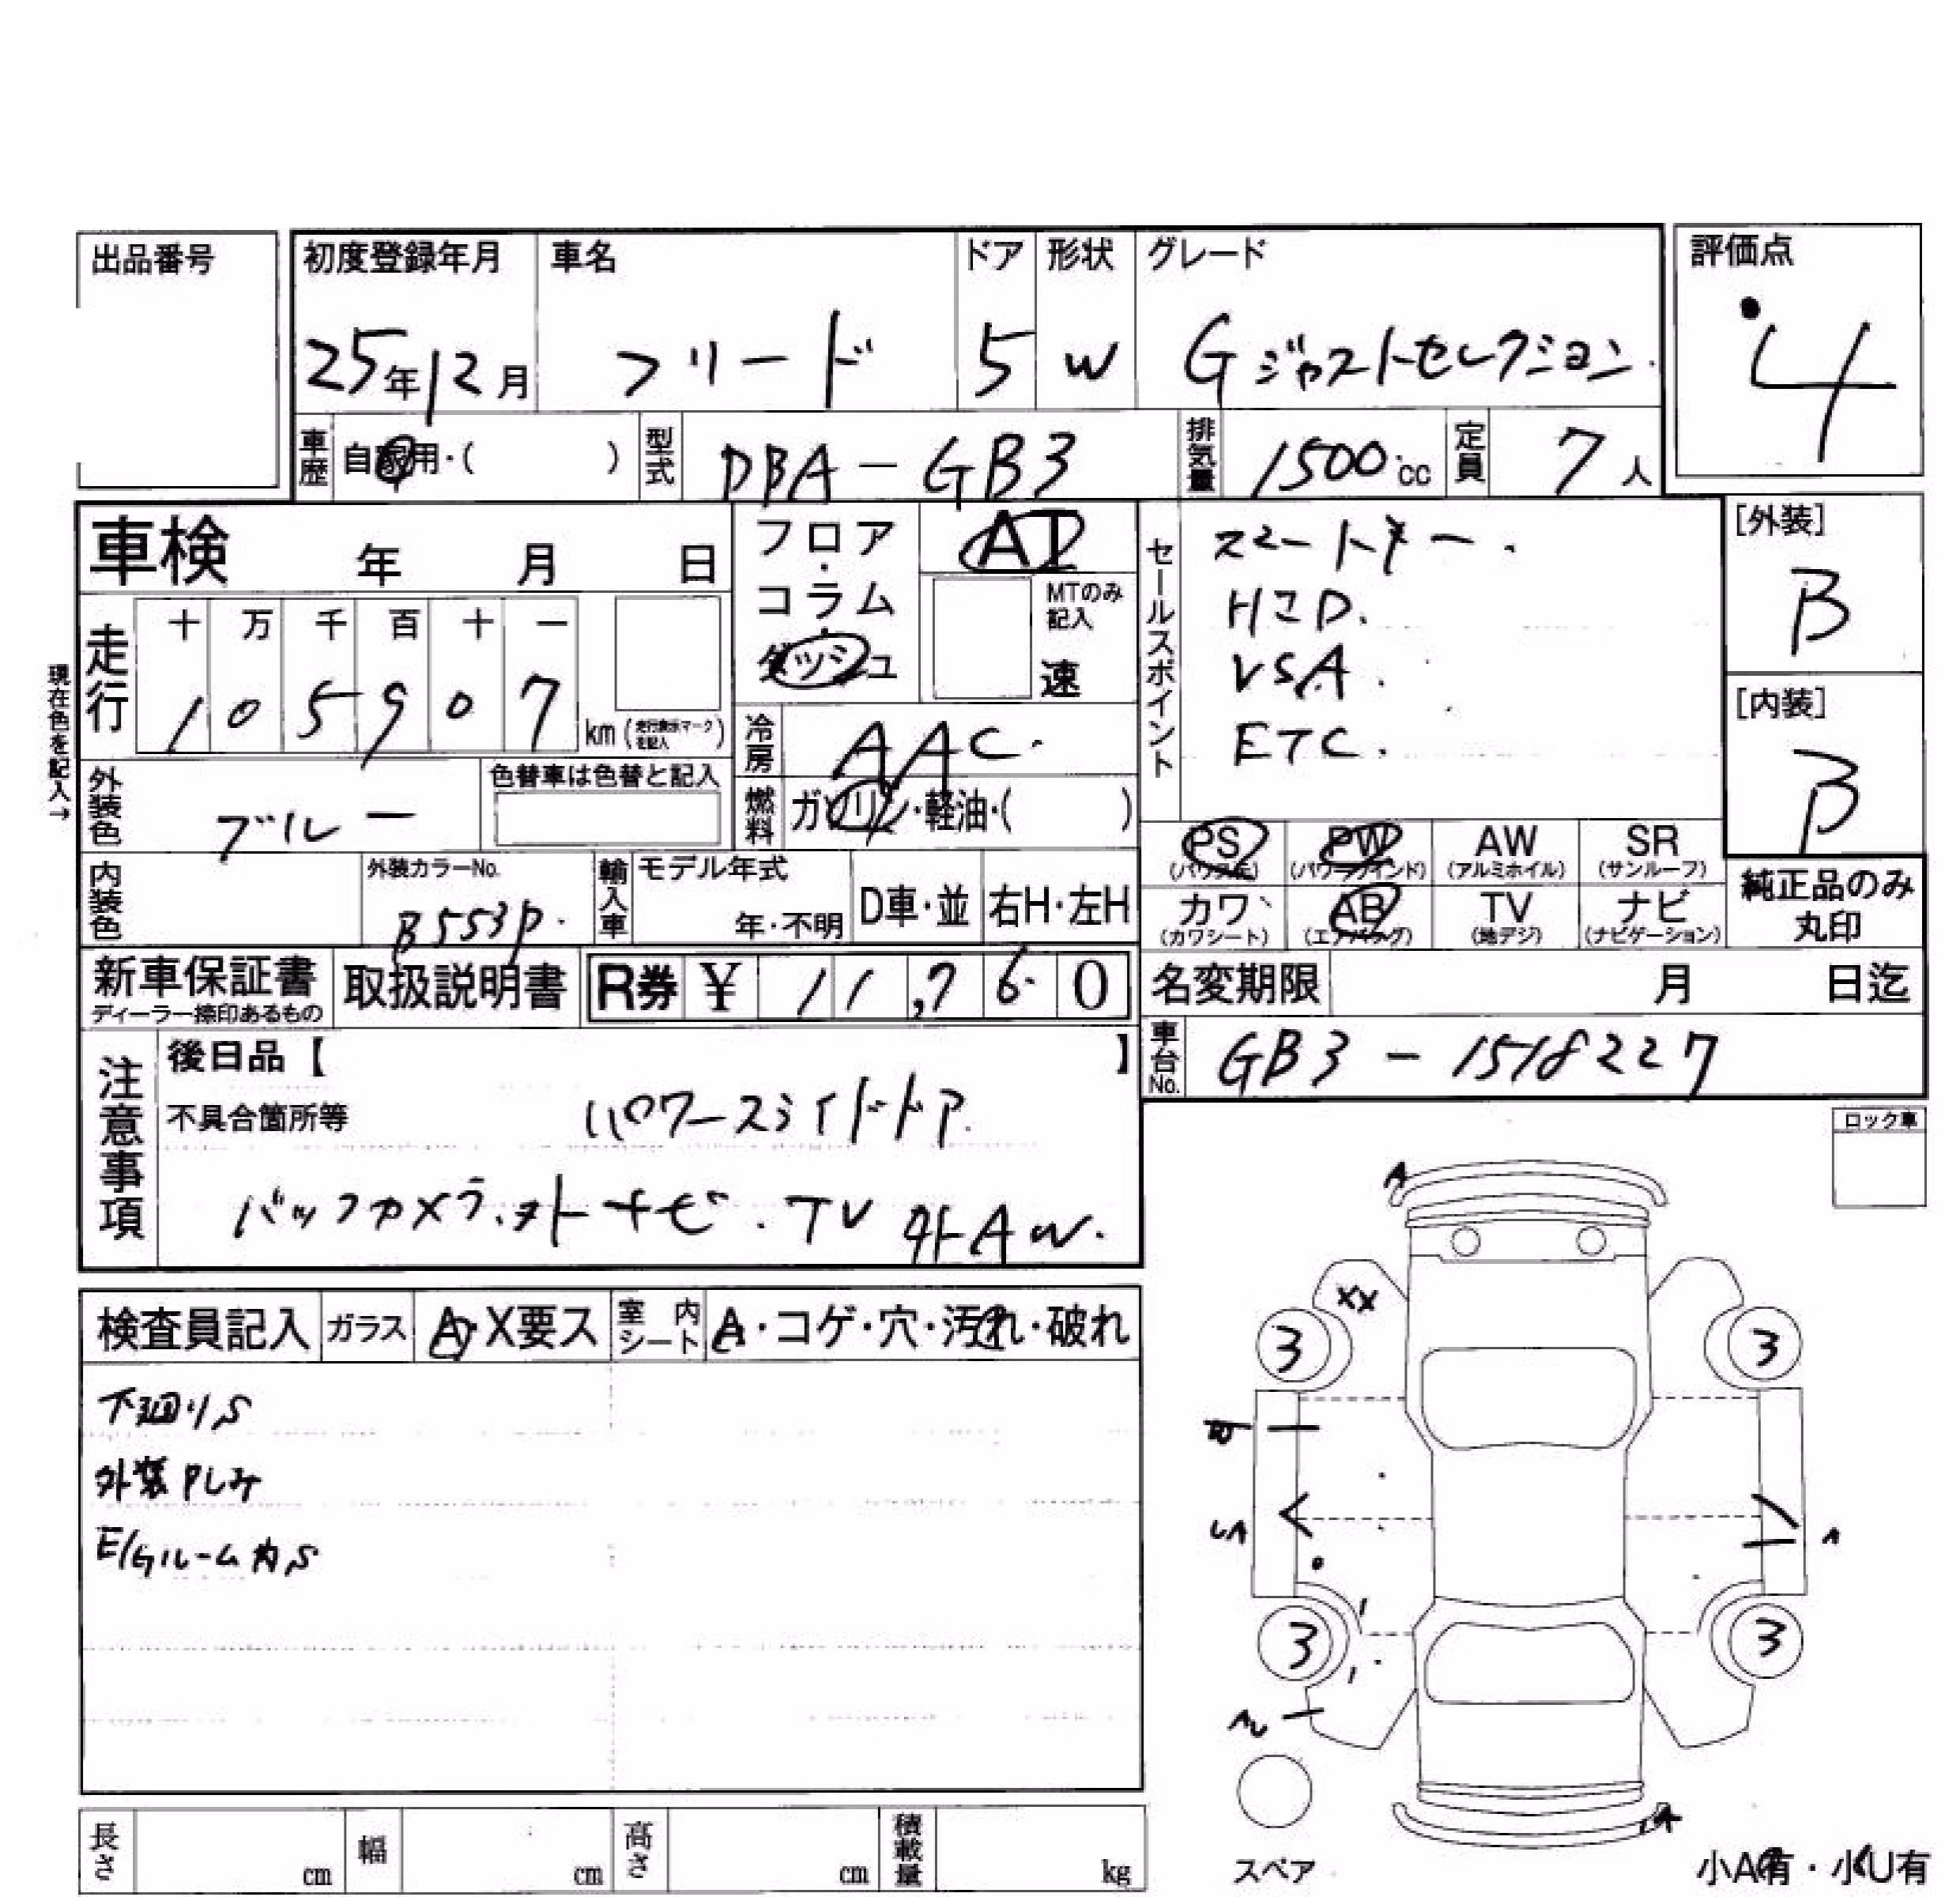 出品番号
初度登録年月 車名 ドア 形状 グレード 評価点
25年12月 フリード 5 W Gジャストセレクション. 4
車歴 自家用・( ) 型式 DBA-GB3 排気量 1500cc 定員 7人
車検 年 月 日
フロア・コラム・ダッシュ AT
MTのみ記入 速
セールスポイント
スマートキー.
HID.
VSA.
ETC.
[外装]
B
[内装]
B
現在色を記入→
走行 十 万 千 百 十 一
1 0 5 9 0 7 km(走行表示マークを記入)
冷房 AAC.
外装色 ブルー 色替車は色替と記入
燃料 ガソリン・軽油・( )
PS PW AW SR
(パワステ) (パワーウインド) (アルミホイル) (サンルーフ)
カワ AB TV ナビ
(カワシート) (エアバッグ) (地デジ) (ナビゲーション)
純正品のみ
丸印
内装色 外装カラーNo. B553P.
輸入車 モデル年式 年・不明 D車・並 右H・左H
新車保証書 取扱説明書 R券 ¥ 11,760
ディーラー捺印あるもの
名変期限 月 日迄
車台No. GB3-1518227
注意事項
後日品【 】
不具合箇所等 パワースライドドア.
バックカメラ.外ナビ.TV 外AW.
ロック車
検査員記入 ガラス A・X要ス 室内シート A・コゲ・穴・汚れ・破れ
下廻りS
外装PLみ
E/Gルーム内S
A
XX
3 3
A
3 3
AU
A
スペア
小A有・小U有
長さ cm 幅 cm 高さ cm 積載量 kg